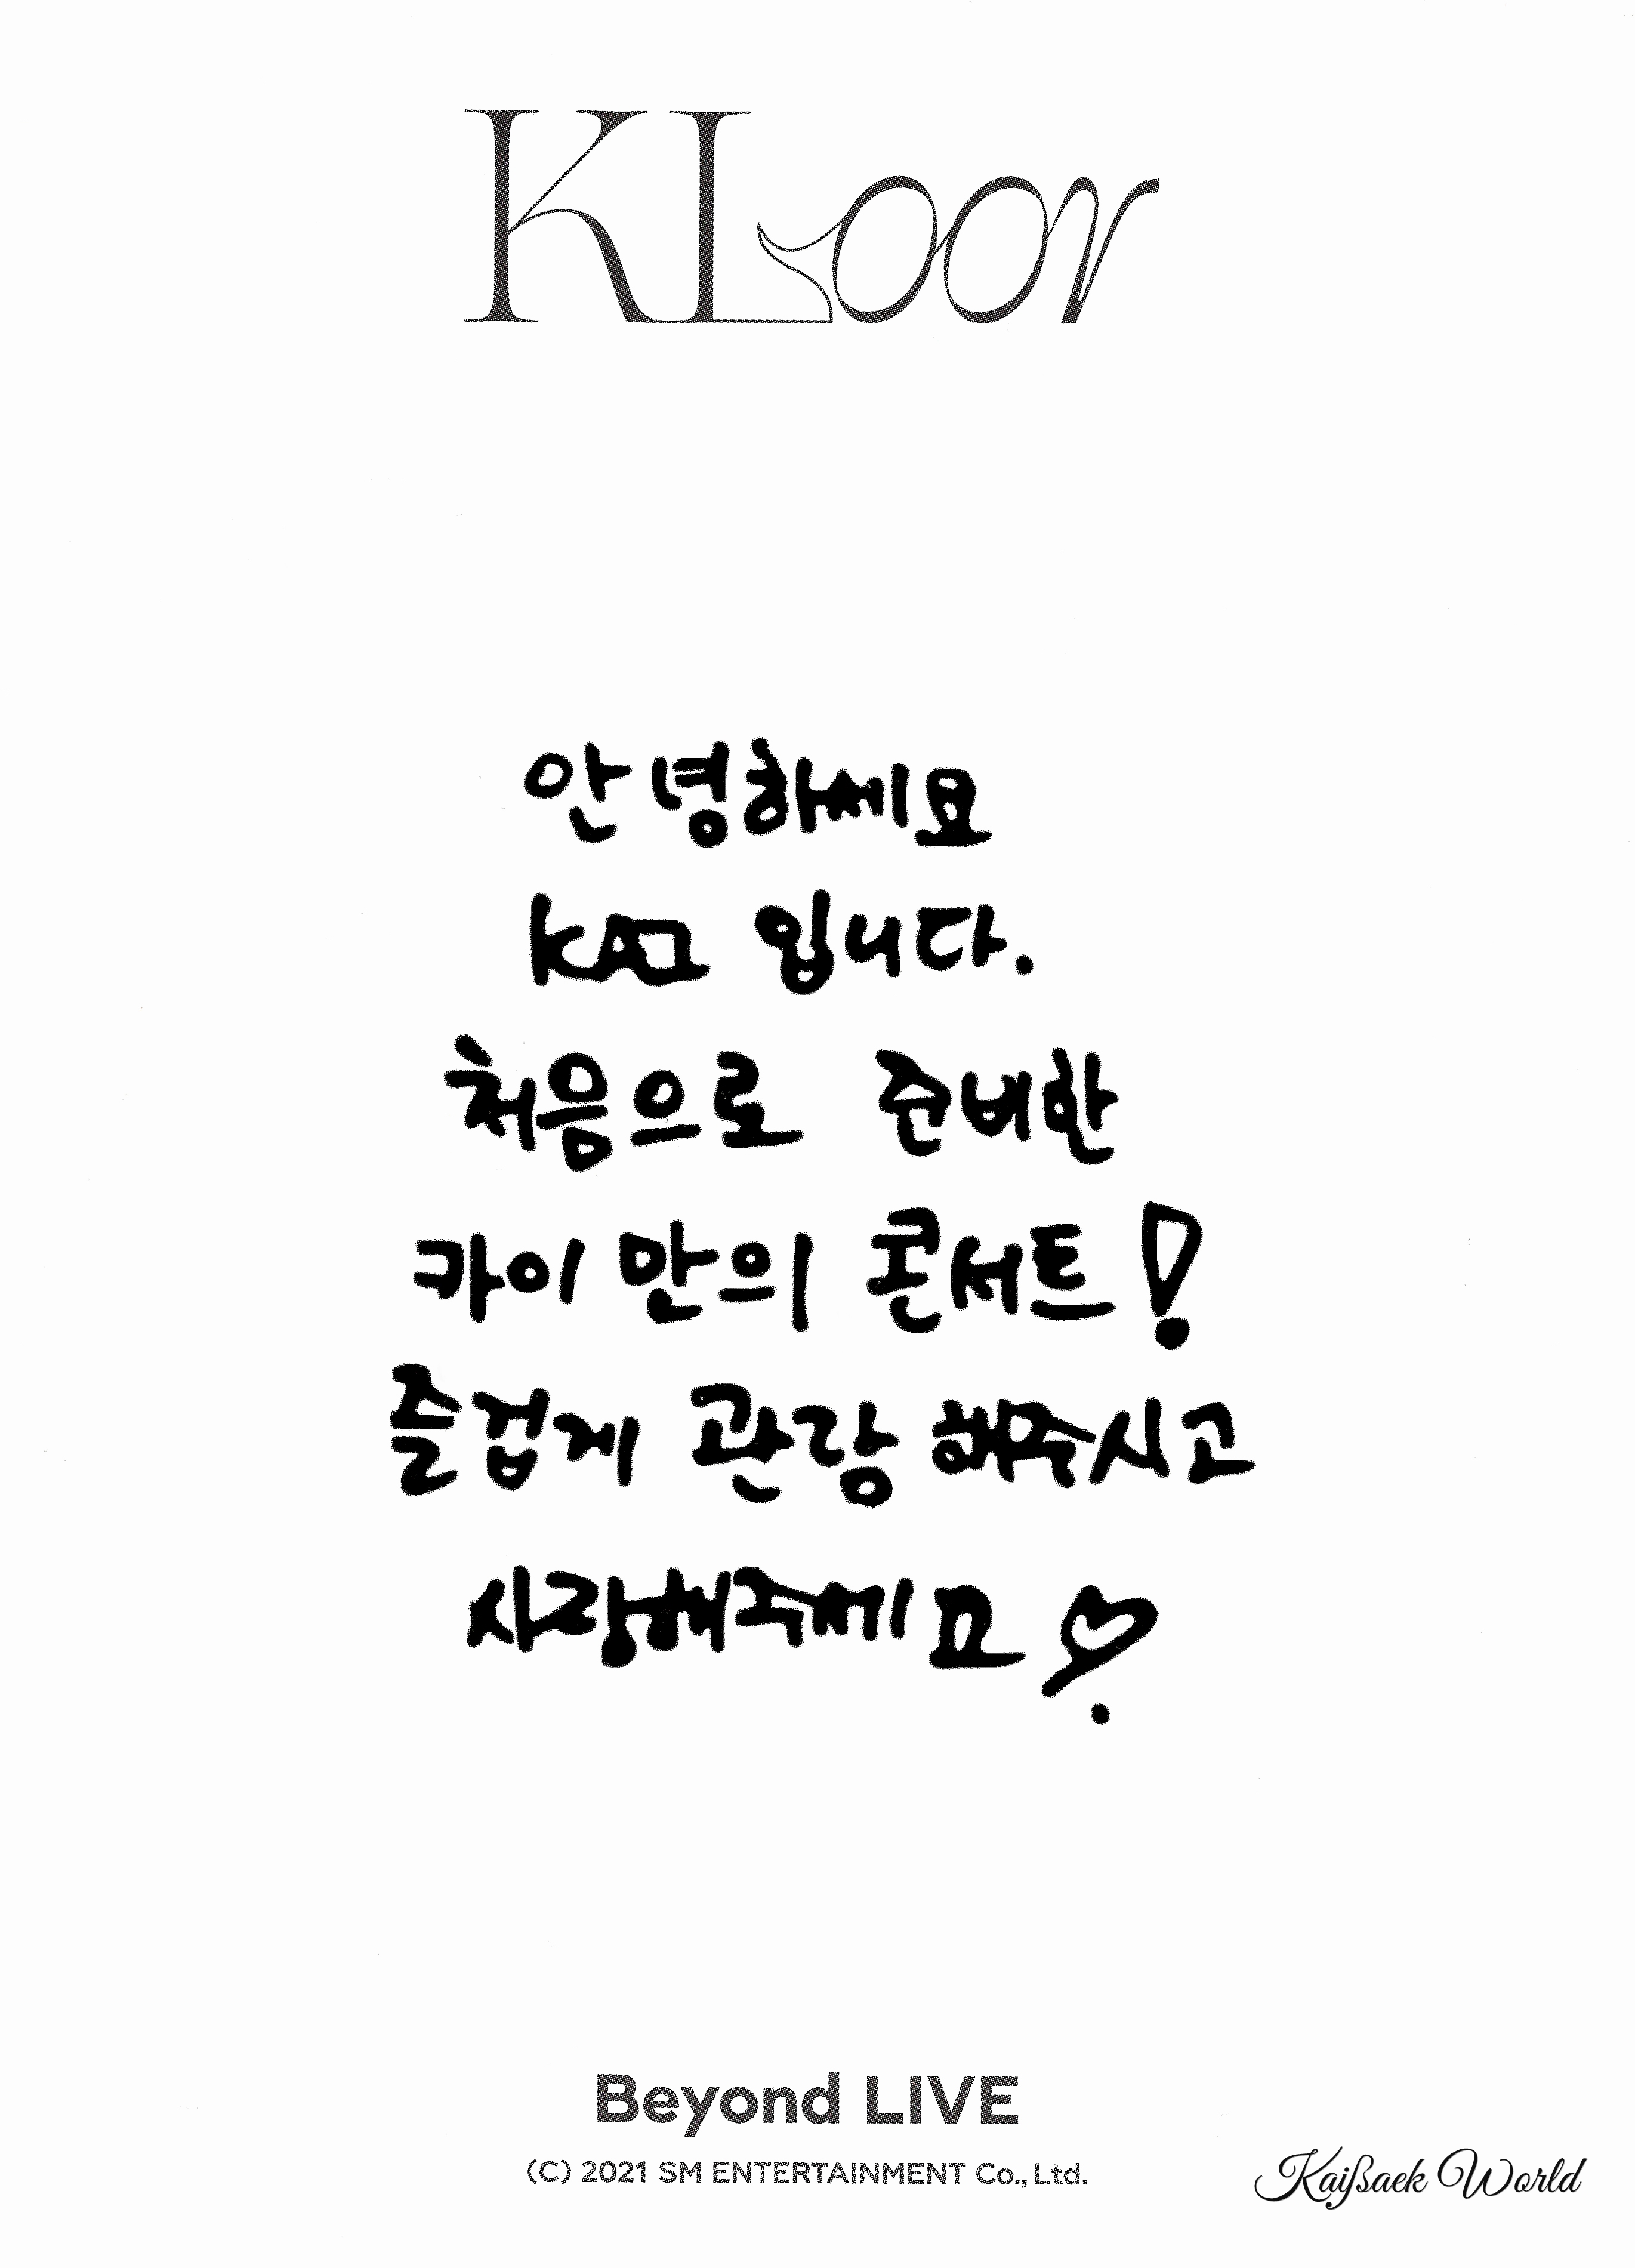 KLoor
안녕하쎄요
KAI 입니다.
처음으로 준비한
카이 만의 콘서트!
즐겁게 관람 해주시고
사랑해주쎄요♡.
Beyond LIVE
(C) 2021 SM ENTERTAINMENT Co., Ltd.
KaiBaek World